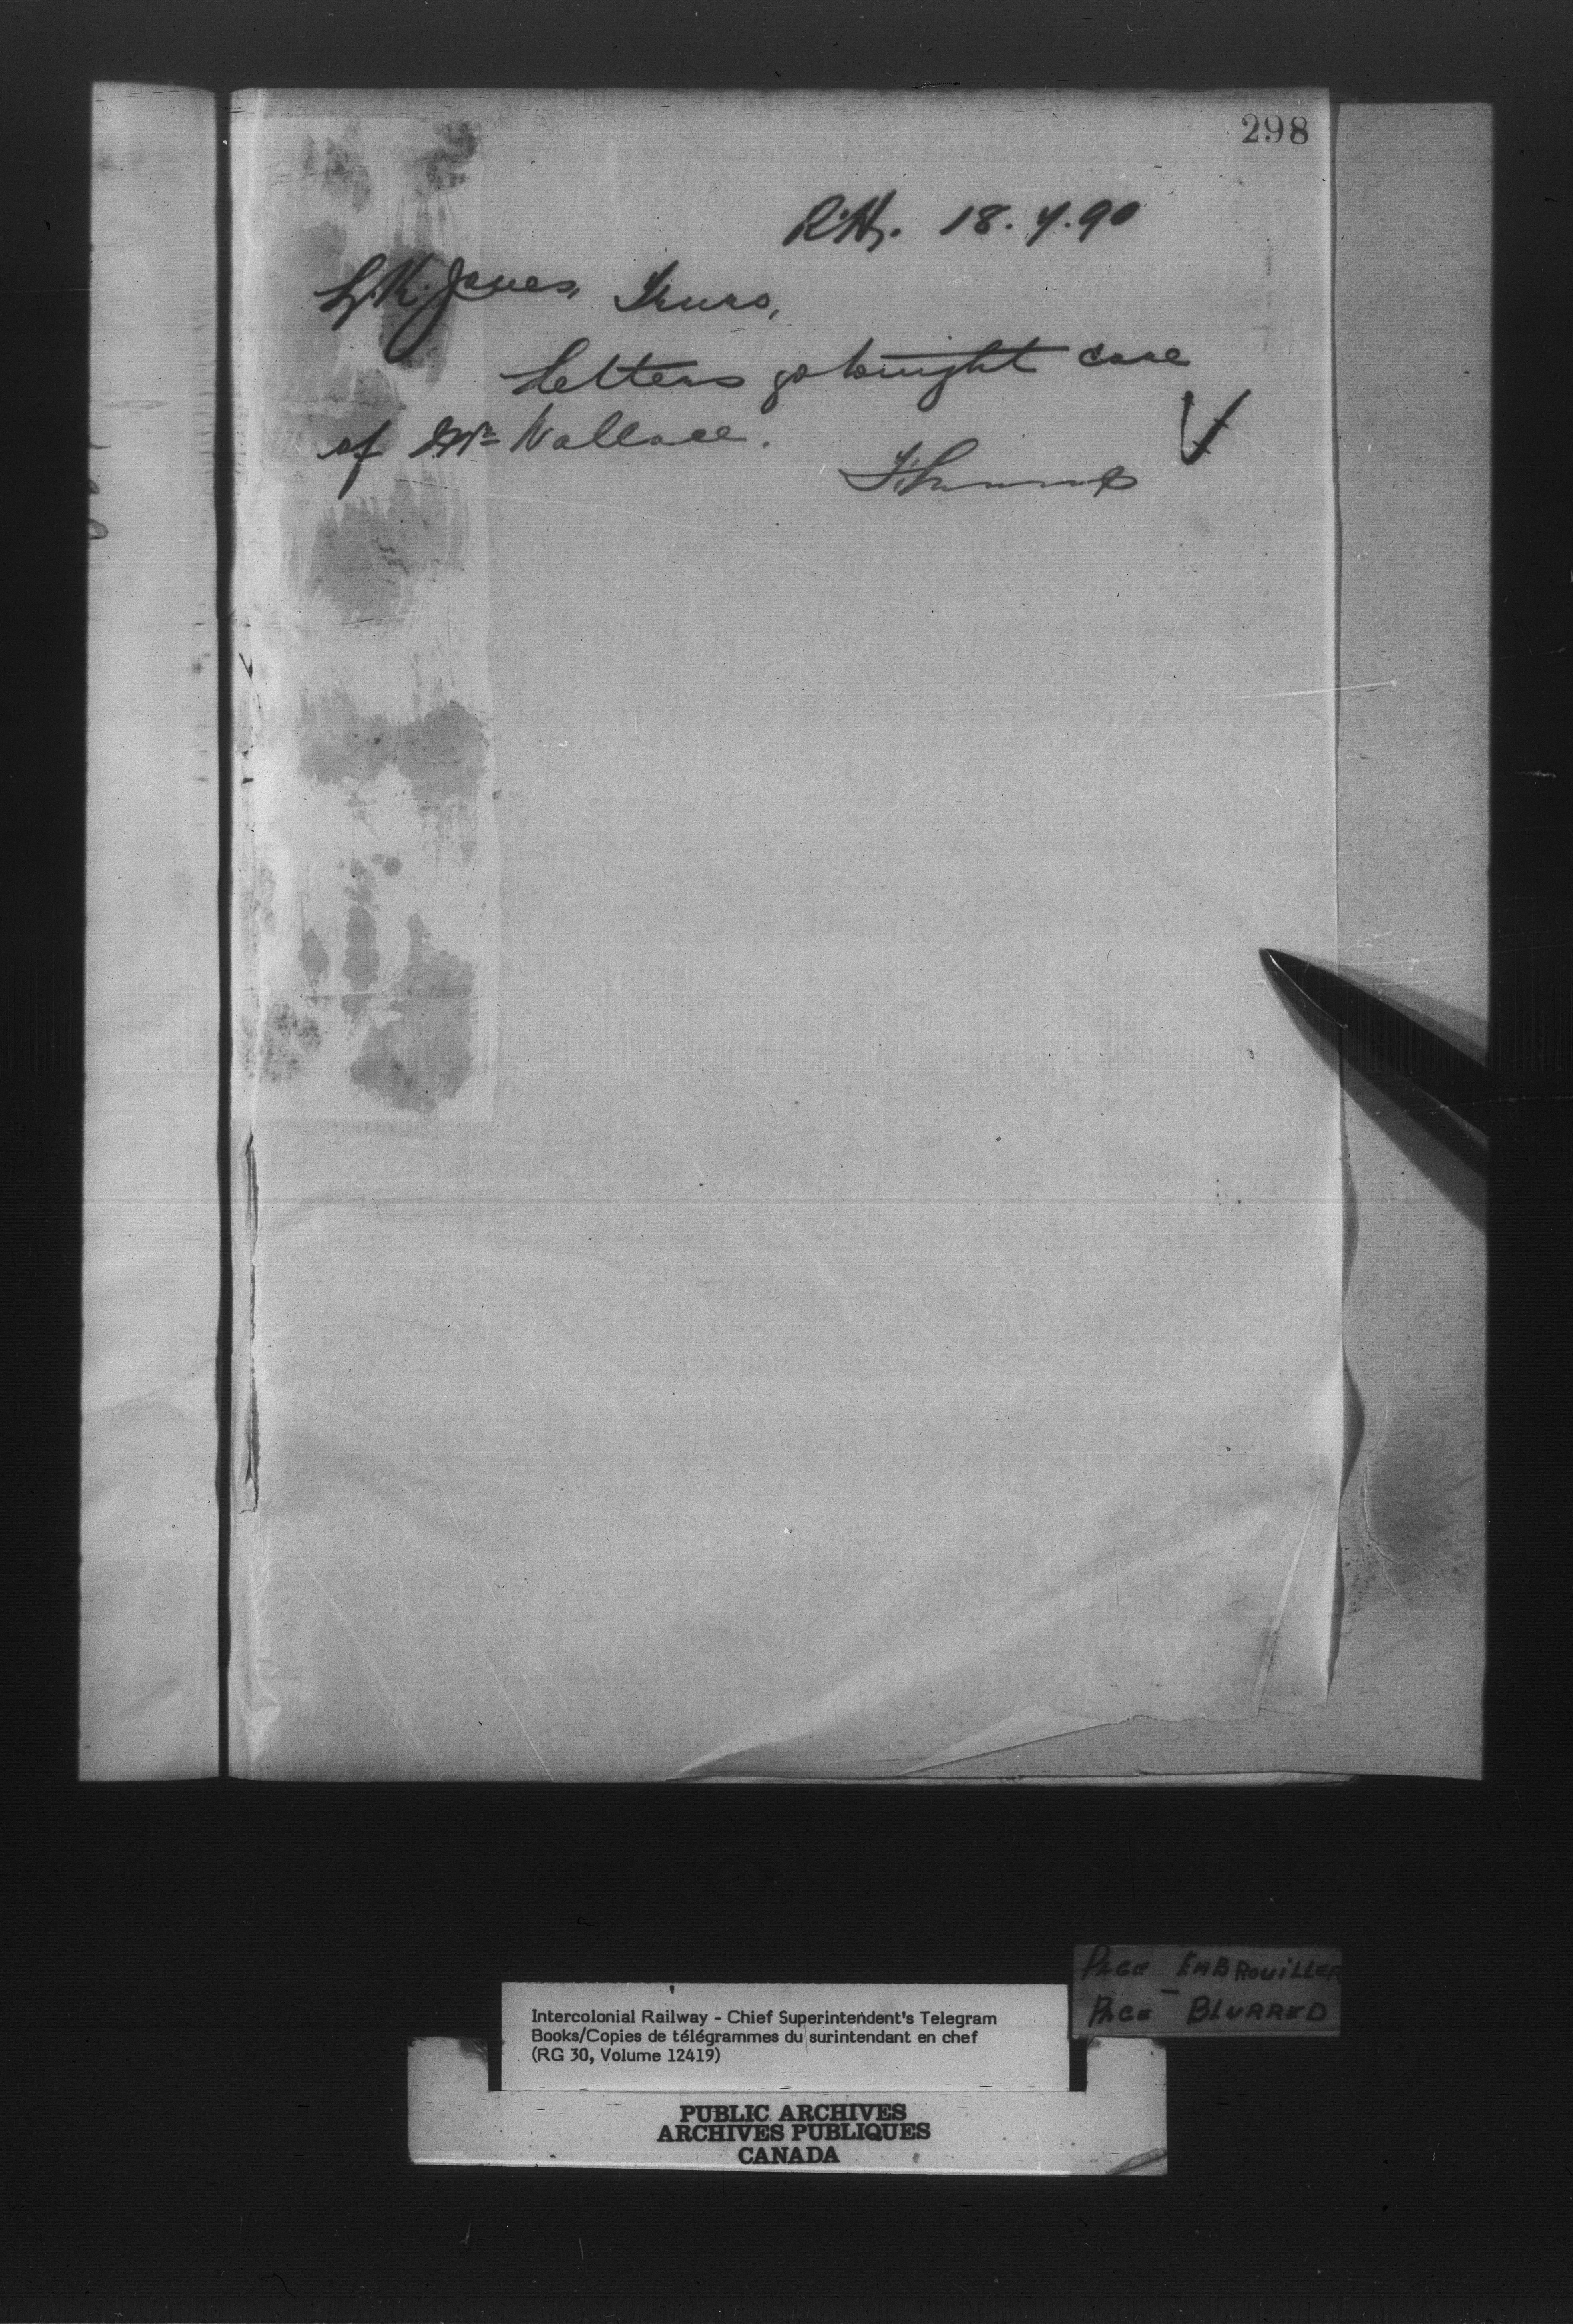 298
18.7.90
L.K. Jones, Truro,
Letters go tonight care
of Mr Wallace.
Page Embrouiller
-
Page Blurred
Intercolonial Railway - Chief Superintendent's Telegram
Books/Copies de télégrammes du surintendant en chef
(RG 30, Volume 12419)
PUBLIC ARCHIVES
ARCHIVES PUBLIQUES
CANADA